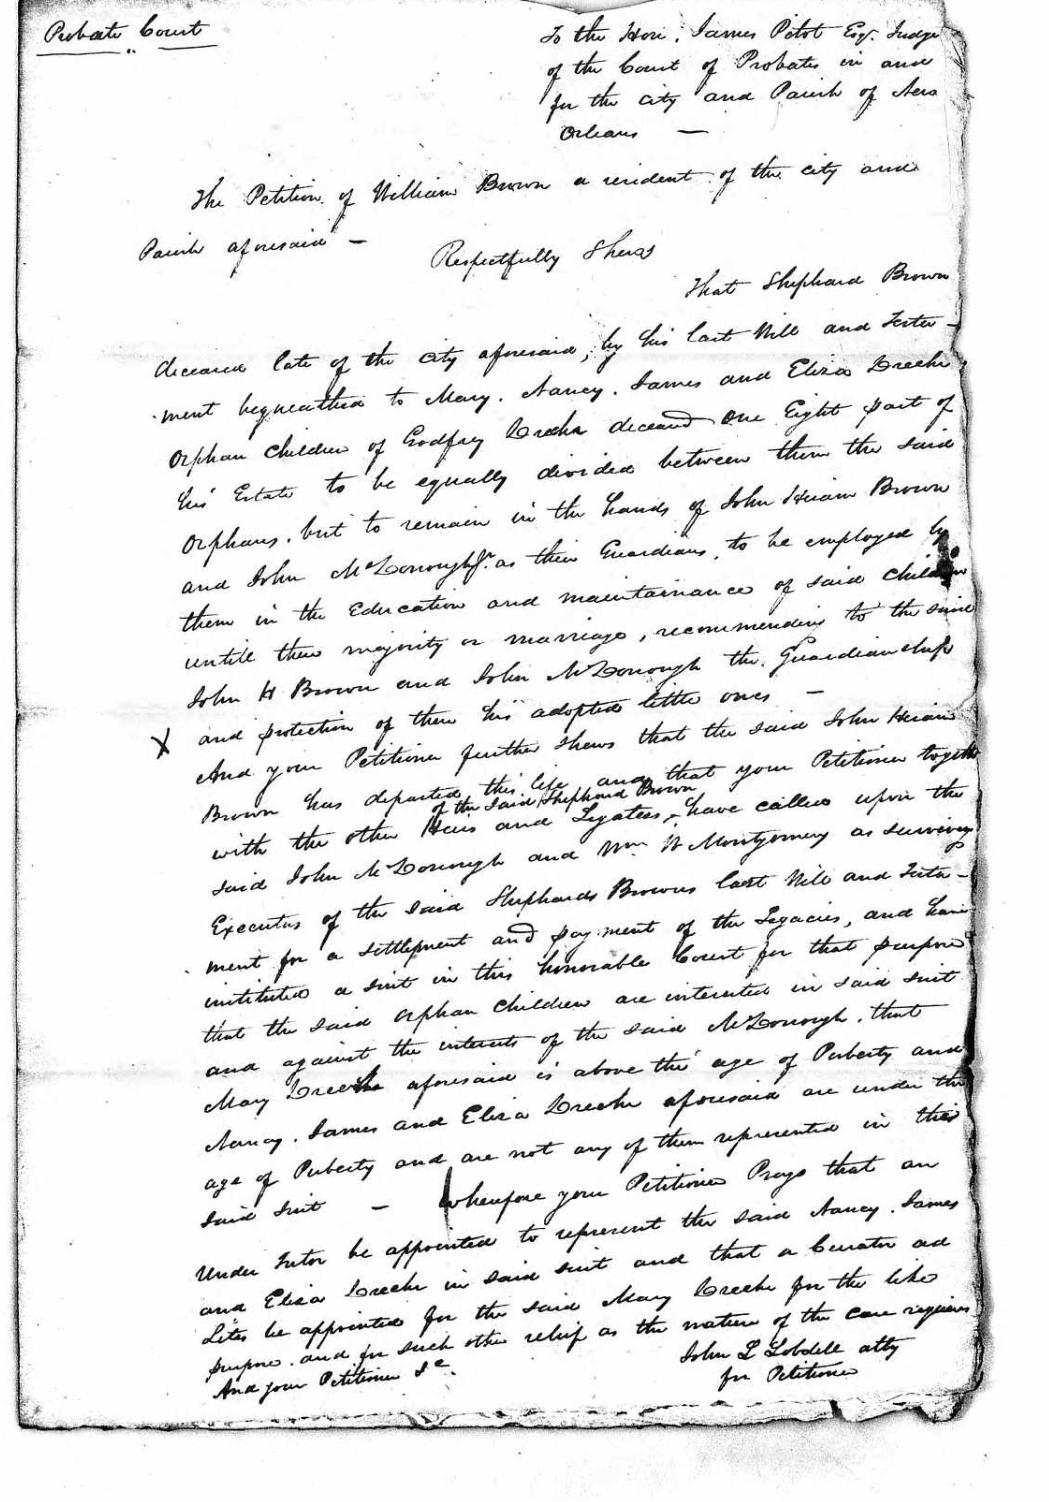 Probate Court
To the Hon. James Pitot Esqr. Judge
of the Court of Probates in and
for the city and Parish of New
Orleans —
The Petition of William Brown a resident of the city and
Parish aforesaid —
Respectfully Shews
That Shephard Brown
deceased late of the city aforesaid, by his last Will and Testa-
ment bequeathed to Mary, Nancy, James and Eliza
Orphan children of Godfrey deceased one Eight part of
his Estate to be equally divided between them the said
Orphans, but to remain in the hands of John Hiram Brown
and John McDonough Jr. as their Guardians, to be employed by
them in the Education and maintainance of said children
untill their majority or marriage, recommending to the said
John H Brown and John McDonough the Guardianship
X and protection of them his adopted little ones —
And your Petitioner further shews that the said John Hiram
Brown has departed this life and that your Petitioner together
of the said Shephard Brown
with the other Heirs and Legatees, have called upon the
said John McDonough and Wm W Montgomery as surviving
Executors of the said Shephards Browns last Will and Testa-
ment for a settlement and payment of the Legacies, and have
instituted a suit in this honorable Court for that purpose
that the said orphan children are interested in said suit
and against the interests of the said McDonough, that
Mary aforesaid is above the age of Puberty and
Nancy, James and Eliza aforesaid are under the
age of Puberty and are not any of them represented in this
said suit — Wherefore your Petitioner Prays that an
Under Tutor be appointed to represent the said Nancy, James
and Eliza in said suit and that a Curator ad
Lites be appointed for the said Mary for the like
purpose, and for such other relief as the nature of the case requires
And your Petitioner &c.
John L Lobdell atty
for Petitioner